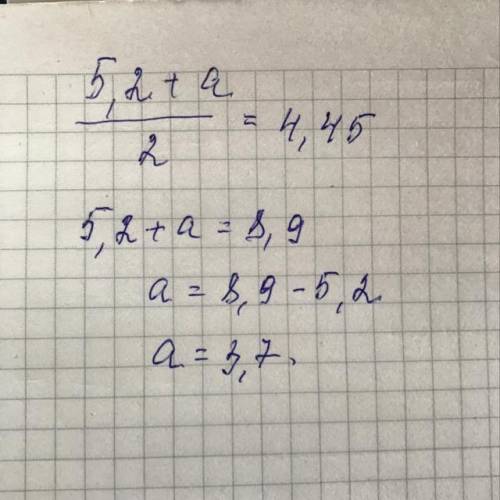 5,2 + a / 2 = 4,45
5,2 + a = 8,9
a = 8,9 - 5,2
a = 3,7.